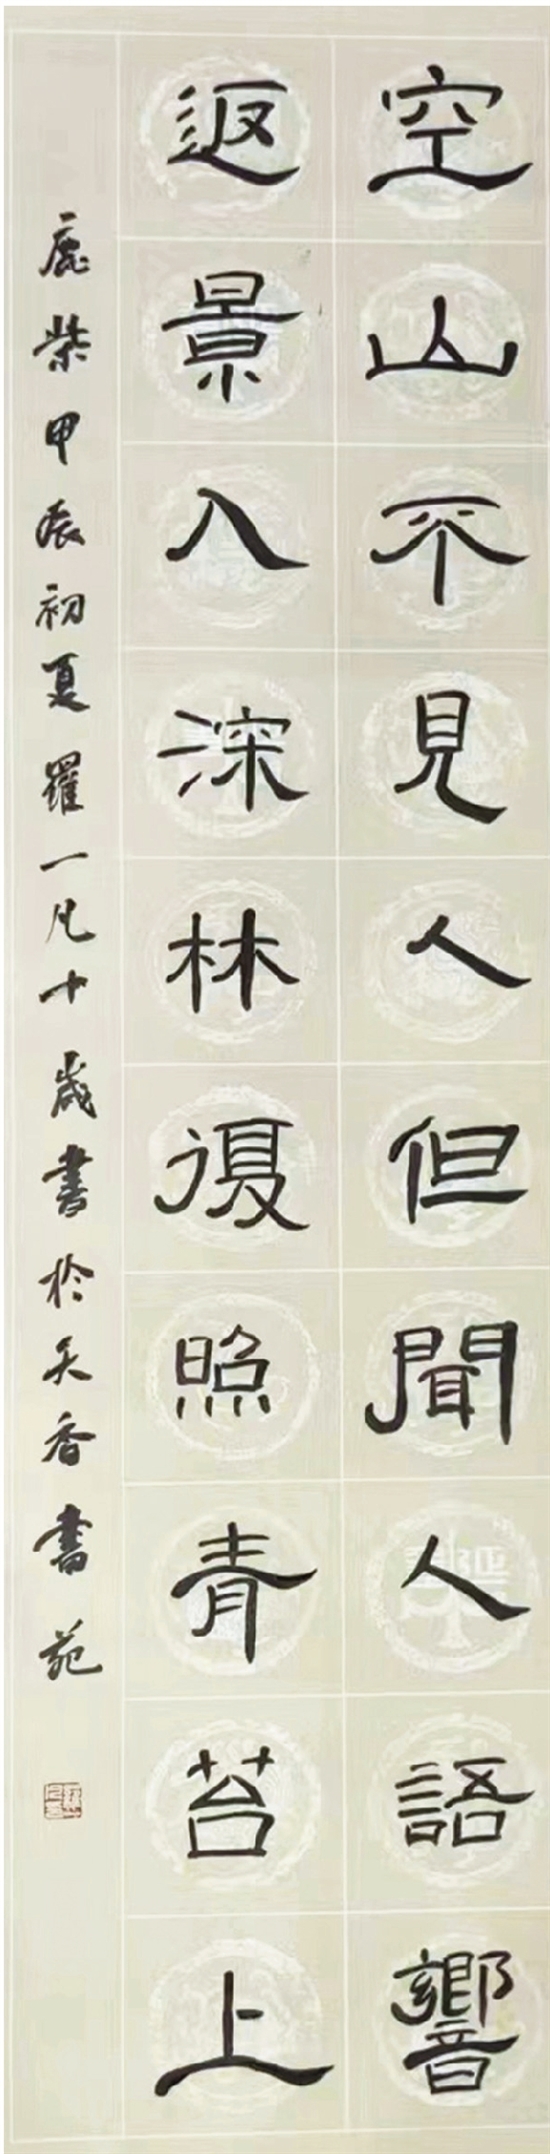 空山不見人但聞人語響
返景入深林復照青苔上
鹿柴甲辰初夏羅一凡十歲書於天香書苑